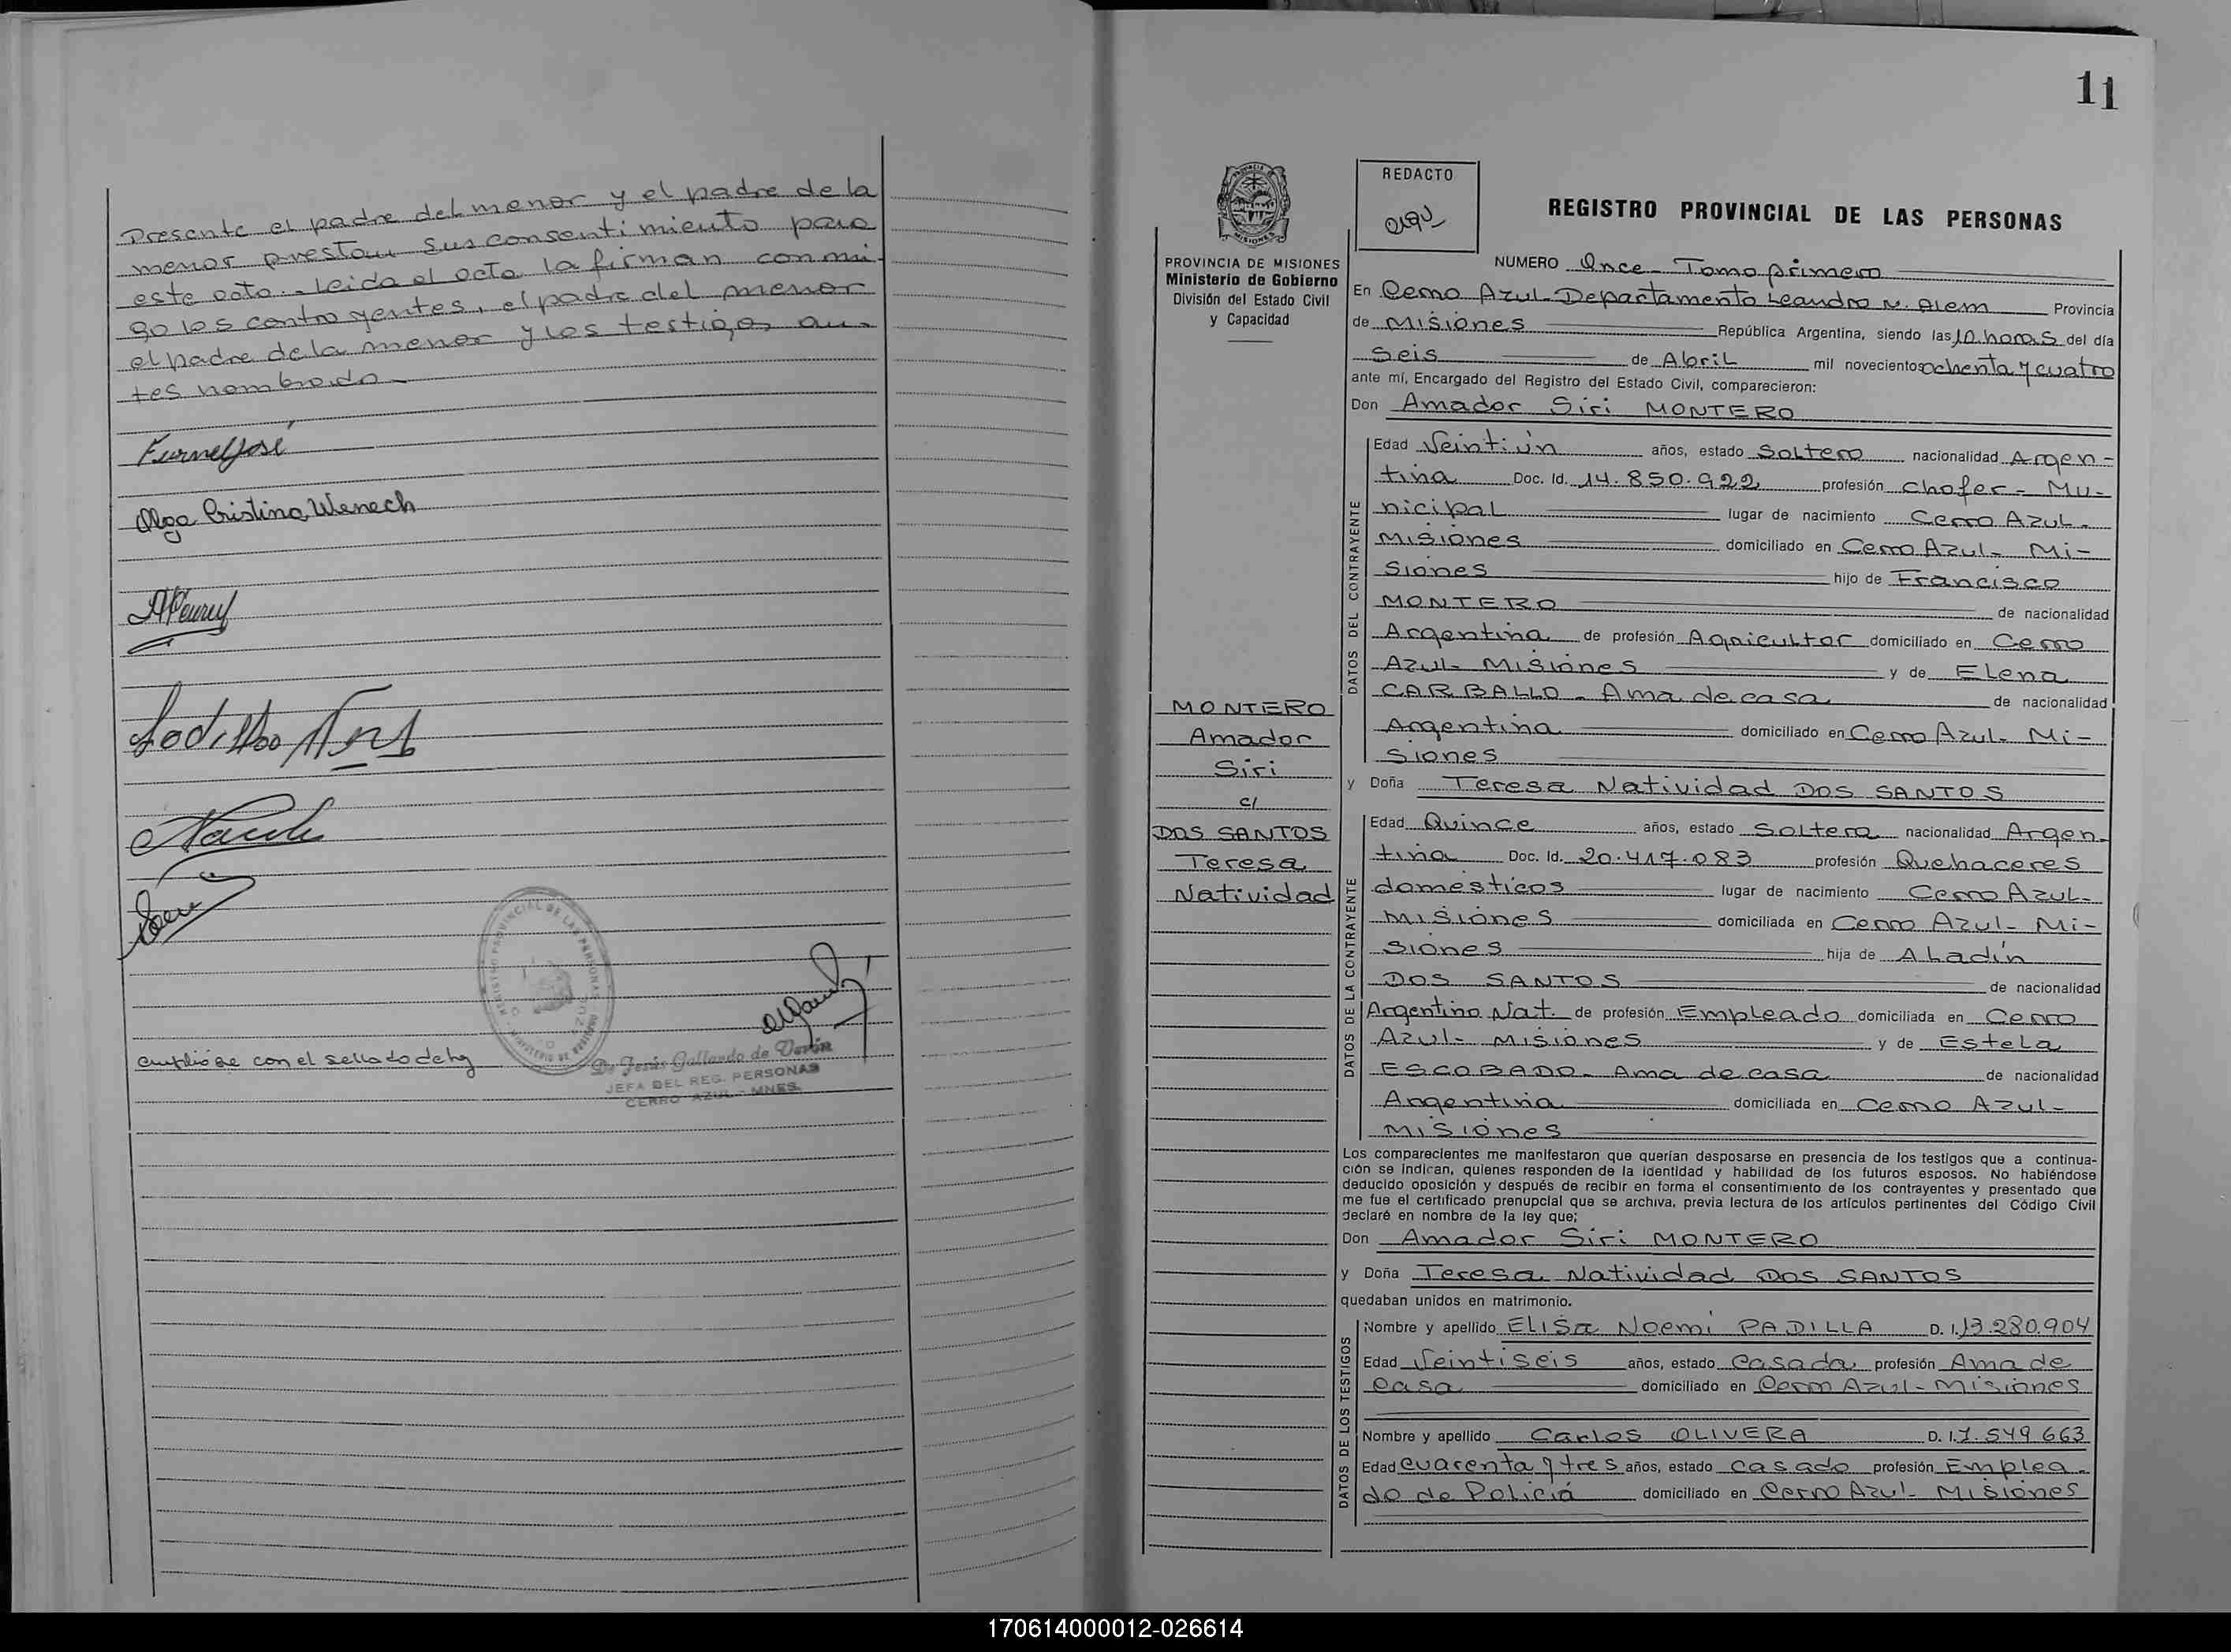 Presente el padre del menor y el padre de la
menor prestan sus consentimiento para
este acto.- Leida el acta la firman conmi-
go los contrayentes, el padre del menor
el padre de la menor y los testigos an-
tes nombrado-
Furnel José
Olga Cristina Wenech
REGISTRO PROVINCIAL DE LAS PERSONAS
Cumpliose con el sellado de ley
De Jesús Gallardo de Verón
JEFA DEL REG. PERSONAS
CERRO AZUL - MNES.
11
PROVINCIA DE MISIONES
Ministerio de Gobierno
División del Estado Civil
y Capacidad
MONTERO
Amador
Siri
c/
DOS SANTOS
Teresa
Natividad
REDACTO
REGISTRO PROVINCIAL DE LAS PERSONAS
NUMERO Once - Tomo primero
En Cerro Azul- Departamento Leandro N. Alem Provincia
de Misiones República Argentina, siendo las 10 horas del día
Seis de Abril mil novecientos ochenta y cuatro
ante mí, Encargado del Registro del Estado Civil, comparecieron:
Don Amador Siri MONTERO
DATOS DEL CONTRAYENTE
Edad Veintiún años, estado Soltero nacionalidad Argen-
tina Doc. Id. 14.850.922 profesión chofer - Mu-
nicipal lugar de nacimiento Cerro Azul-
Misiones domiciliado en Cerro Azul- Mi-
siones hijo de Francisco
MONTERO de nacionalidad
Argentina de profesión Agricultor domiciliado en Cerro
Azul- Misiones y de Elena
CARBALLO - Ama de casa de nacionalidad
Argentina domiciliado en Cerro Azul- Mi-
siones
y Doña Teresa Natividad DOS SANTOS
DATOS DE LA CONTRAYENTE
Edad Quince años, estado Soltera nacionalidad Argen-
tina Doc. Id. 20.417.083 profesión Quehaceres
domésticos lugar de nacimiento Cerro Azul-
Misiones domiciliada en Cerro Azul- Mi-
siones hija de Aladín
DOS SANTOS de nacionalidad
Argentino Nat. de profesión Empleado domiciliada en Cerro
Azul- Misiones y de Estela
ESCOBADO- Ama de casa de nacionalidad
Argentina domiciliada en Cerro Azul-
Misiones
Los comparecientes me manifestaron que querían desposarse en presencia de los testigos que a continua-
ción se indican, quienes responden de la identidad y habilidad de los futuros esposos. No habiéndose
deducido oposición y después de recibir en forma el consentimiento de los contrayentes y presentado que
me fue el certificado prenupcial que se archiva, previa lectura de los artículos pertinentes del Código Civil
declaré en nombre de la ley que;
Don Amador Siri MONTERO
y Doña Teresa Natividad DOS SANTOS
quedaban unidos en matrimonio.
DATOS DE LOS TESTIGOS
Nombre y apellido Elisa Noemi PADILLA D. I. 13.280.904
Edad Veintiseis años, estado Casada profesión Ama de
casa domiciliado en Cerro Azul- Misiones
Nombre y apellido Carlos OLIVERA D. I. 7.549.663
Edad cuarenta y tres años, estado casado profesión Emplea-
do de Policiá domiciliado en Cerro Azul- Misiones
170614000012-026614